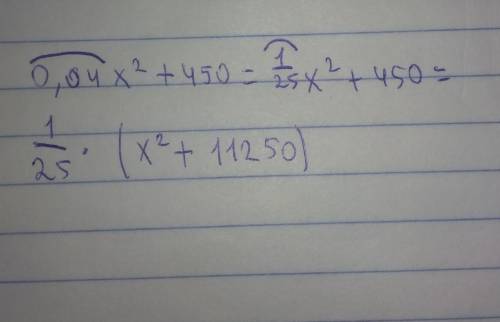 0,04x² + 450 = 1/25 x² + 450 =
1/25 · (x² + 11250)